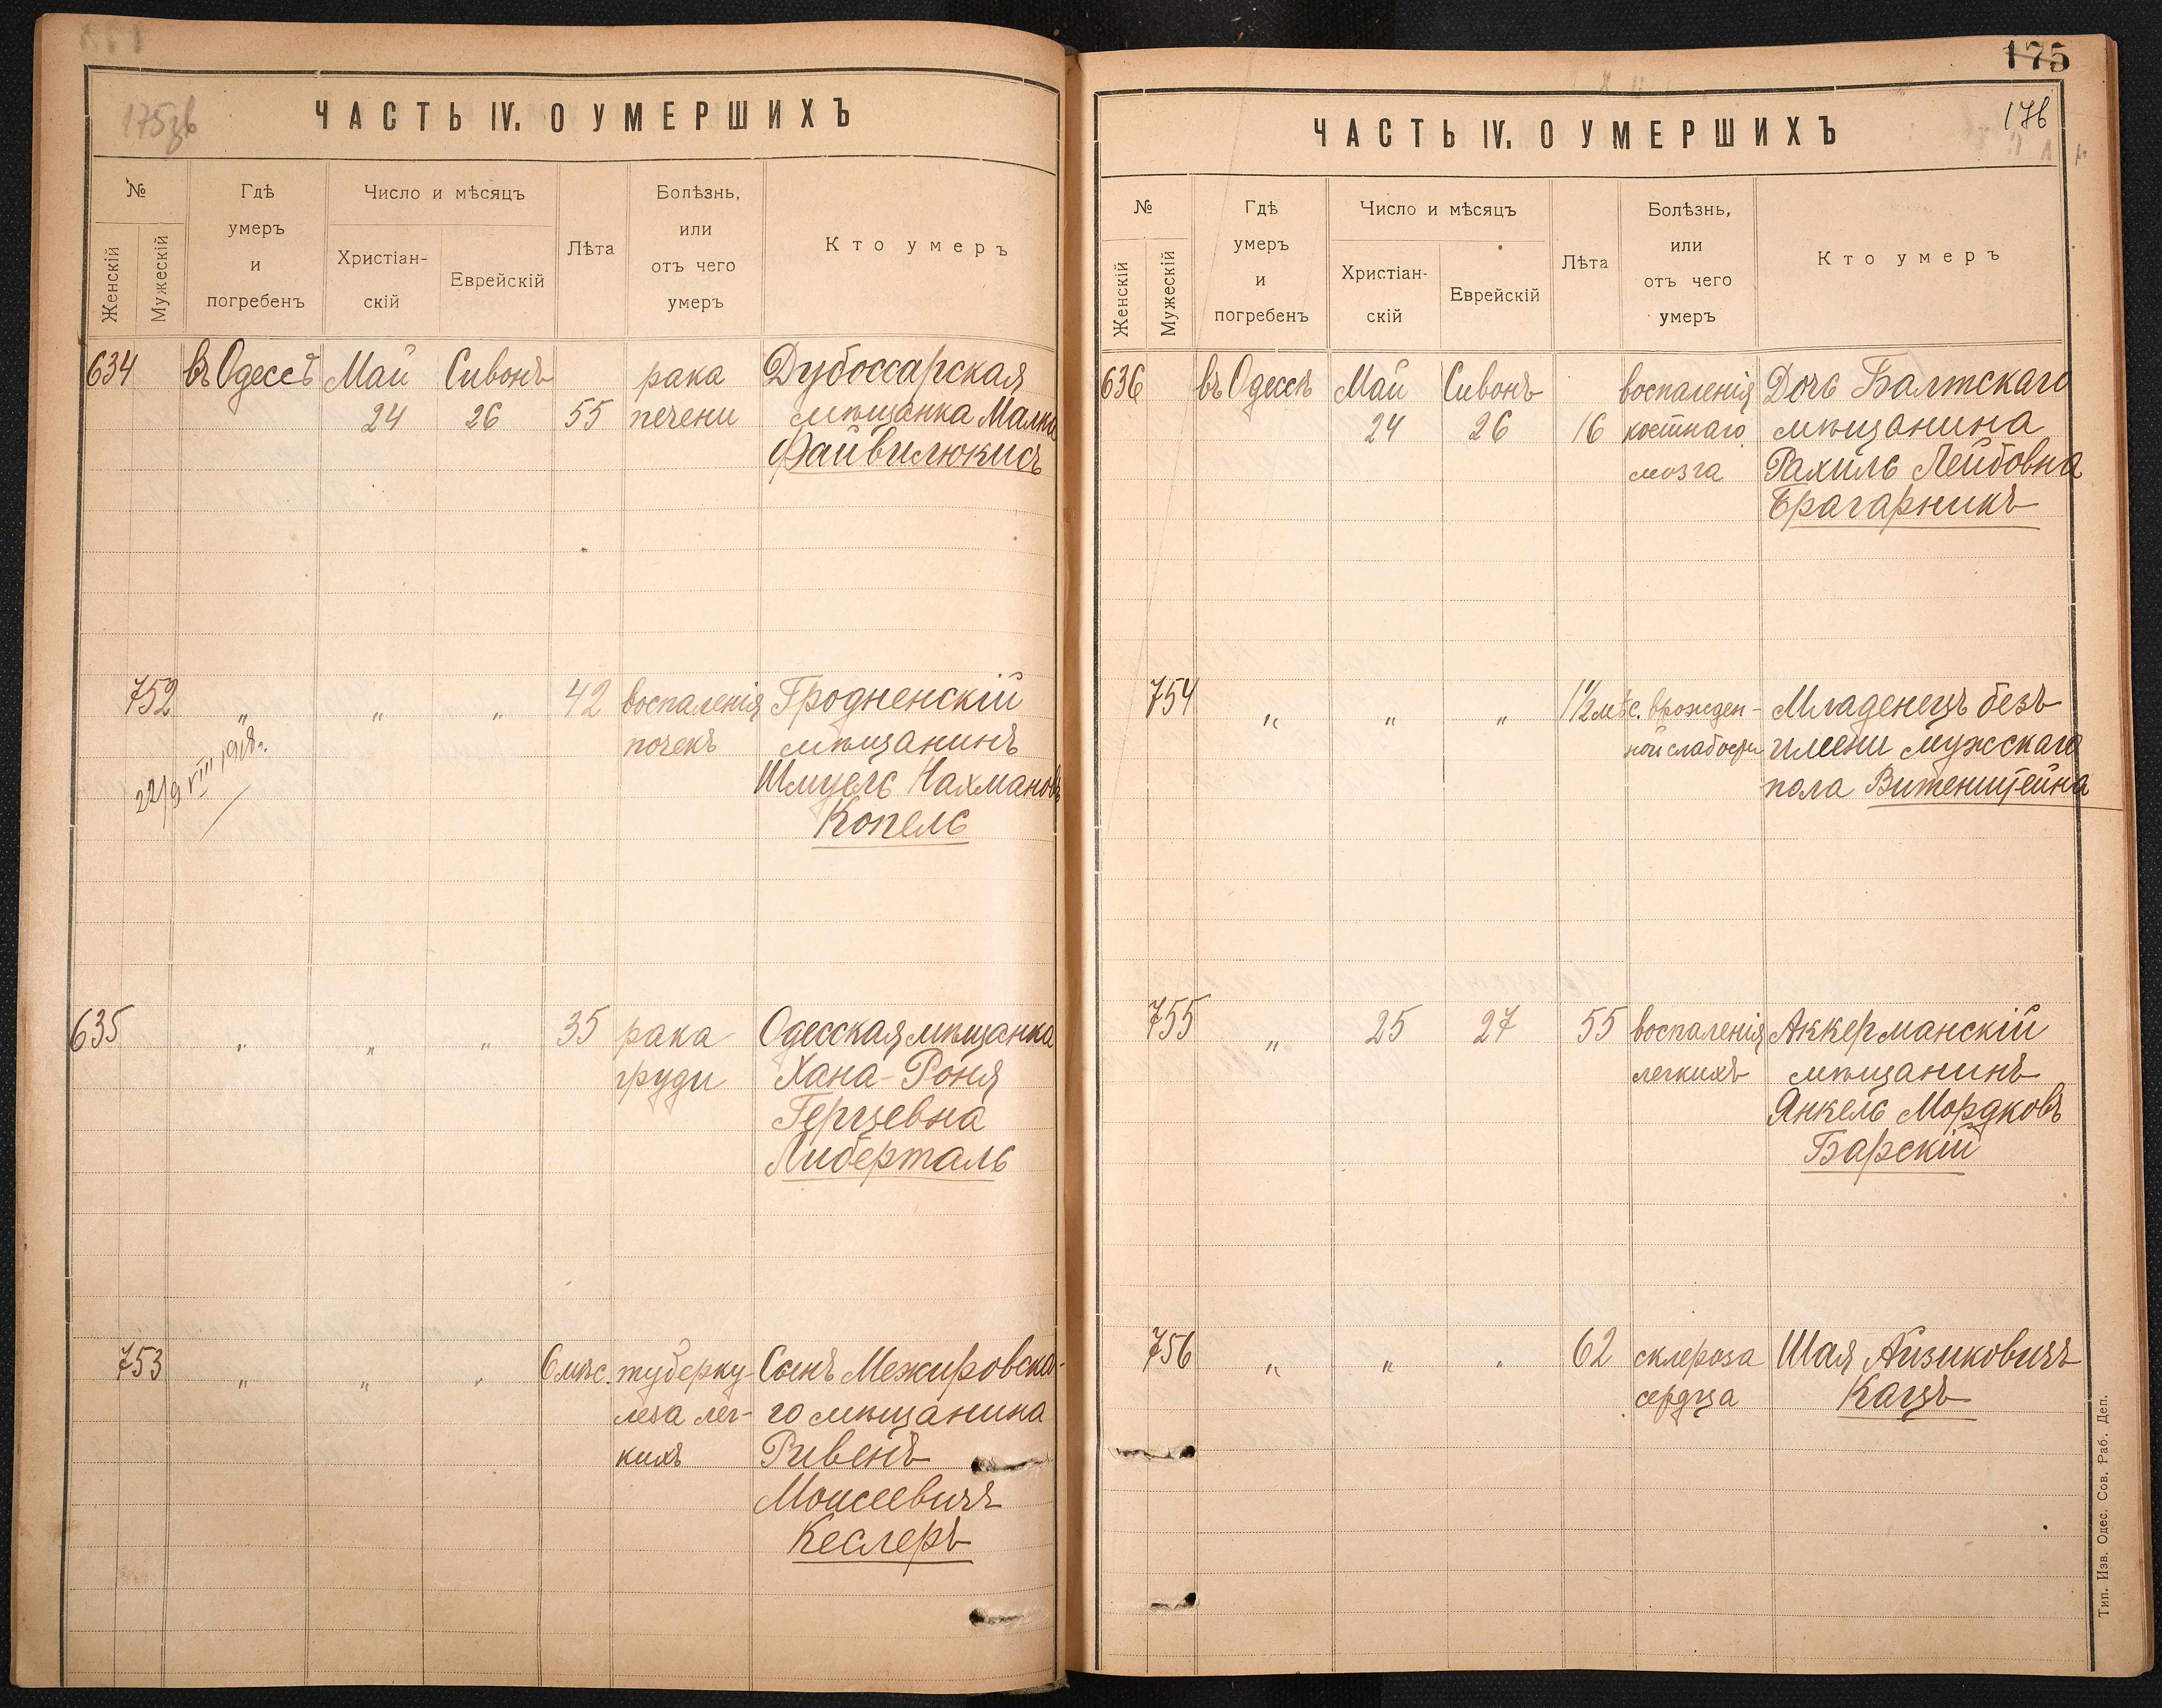 175зв
ЧАСТЬ IV. О УМЕРШИХЪ
№
Женскій
Мужескій
Гдѣ
умеръ
и
погребенъ
Число и мѣсяцъ
Христіан-
скій
Еврейскій
Лѣта
Болѣзнь,
или
отъ чего
умеръ
Кто умеръ
634 въ Одессѣ Май Сивонъ рака Дубоссарская
24 26 55 печени мѣщанка Малка
Файвилюкисъ
752 „ „ „ 42 воспаленія Гродненскій
почекъ мѣщанинъ
22/9 VIII 1918г.
Шмуель Нахмановъ
Копель
635 „ „ „ 35 рака Одесская мѣщанка
груди Хана-Роня
Герцевна
Либерталь
753 „ „ „ 6 мѣс. туберку- Сынъ Межировска-
леза лег- го мѣщанина
кихъ Ривенъ
Моисеевичъ
Кеслеръ
175
176
ЧАСТЬ IV. О УМЕРШИХЪ
№
Женскій
Мужескій
Гдѣ
умеръ
и
погребенъ
Число и мѣсяцъ
Христіан-
скій
Еврейскій
Лѣта
Болѣзнь,
или
отъ чего
умеръ
Кто умеръ
636 въ Одессѣ Май Сивонъ воспаленія Дочь Балтскаго
24 26 16 костнаго мѣщанина
мозга Рахиль Лейбовна
Брагарникъ
754 „ „ „ 1½ мѣс. врожден- Младенецъ безъ
ной слабости имени мужскаго
пола Витенштейна
755 „ 25 27 55 воспаленія Аккерманскій
легкихъ мѣщанинъ
Янкель Мордковъ
Барскій
756 „ „ „ 62 склероза Шая Айзиковичъ
сердца Кацъ
Тип. Изв. Одес. Сов. Раб. Деп.